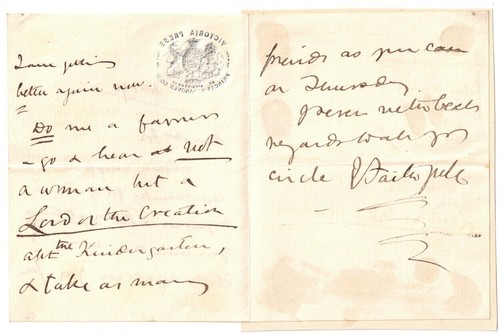 I am getting
better again now.
Do me a favour
- go & hear not
a woman but a
Lord of the Creation
abt the Kindergarten,
& take as many
friends as you can
on Thursday
regards to all yr
circle
VICTORIA PRESS